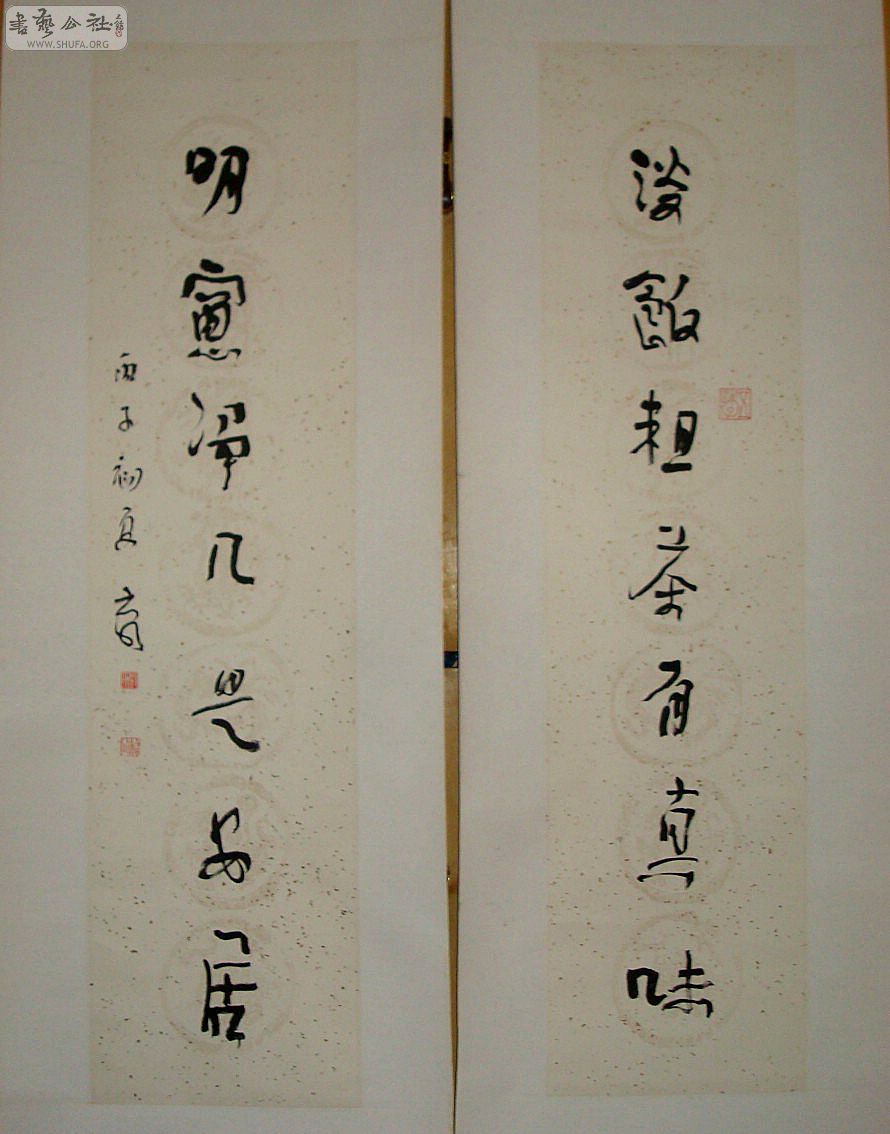 淡飯粗茶有真味
明窻淨几是安居
丙子初夏
書藝公社
WWW.SHUFA.ORG